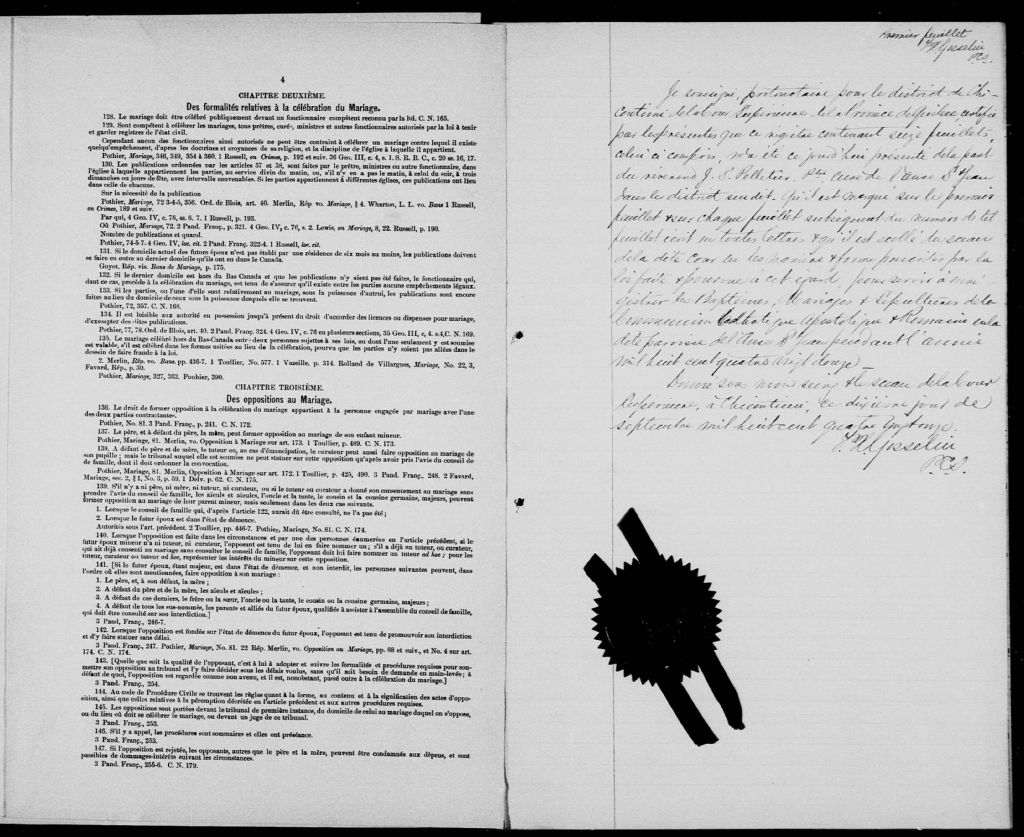 4
CHAPITRE DEUXIÈME.
Des formalités relatives à la célébration du Mariage.
128. Le mariage doit être célébré publiquement devant un fonctionnaire compétent reconnu par la loi. C. N. 165.
129. Sont compétent à célébrer les mariages, tous prêtres, curés, ministres et autres fonctionnaires autorisés par la loi à tenir
et garder registres de l'état civil.
Cependant aucun des fonctionnaires ainsi autorisés ne peut être contraint à célébrer un mariage contre lequel il existe
quelqu'empêchement, d'après les doctrines et croyances de sa religion, et la discipline de l'église à laquelle il appartient.
Pothier, Mariage, 346, 349, 354 à 360. 1 Russell, on Crimes, p. 192 et suiv. 36 Geo. III, c. 4, s. 1. S. R. B. C., c. 20 ss. 16, 17.
130. Les publications ordonnées par les articles 57 et 58, sont faites par le prêtre, ministres ou autre fonctionnaire, dans
l'église à laquelle appartiennent les parties, au service divin du matin, ou, s'il n'y en a pas le matin, à celui du soir, à trois
dimanches ou jours de fête, avec intervalle convenables. Si les parties appartiennent à différentes églises, ces publications ont lieu
dans celle de chacune.
Sur la nécessité de la publication
Pothier, Mariage, 72 3-4-5, 356. Ord. de Blois, art. 40. Merlin, Rép vo. Mariage, § 4. Wharton, L. L. vo. Bans 1 Russell,
on Crimes, 189 et suiv.
Par qui, 4 Geo. IV, c. 76, ss. 6. 7. 1 Russell, p. 193.
Où Pothier, Mariage, 72. 2 Pand. Franç., p. 321. 4 Geo. IV, c. 76, s. 2. Lewis, on Mariage, 8, 22. Russell, p. 190.
Nombre de publications et quand.
Pothier, 74-5-7. 4 Geo. IV, loc. cit. 2 Pand. Franç. 322-4. 1 Russell, loc. cit.
131. Si le domicile actuel des futurs époux n'est pas établi par une résidence de six mois au moins, les publications doivent
se faire en outre au dernier domicile qu'ils ont eu dans le Canada.
Guyot. Rép. vis. Bans de Mariage, p. 175.
132. Si le dernier domicile est hors du Bas Canada et que les publications n'y aient pas été faites, le fonctionnaire qui,
dans ce cas, procède à la célébration du mariage, est tenu de s'assurer qu'il existe entre les parties aucuns empêchements légaux.
133. Si les parties, ou l'une d'elle sont relativement au mariage, sous la puissance d'autrui, les publications sont encore
faites au lieu du domicile de ceux sous la puissance desquels elle se trouvent.
Pothier, 72, 357. C. N. 168.
134. Il est loisible aux autorité en possession jusqu'à présent du droit d'accorder des licences ou dispenses pour mariage,
d'exempter des dites publications.
Pothier, 77, 78. Ord. de Blois, art. 40. 2 Pand. Franç. 324. 4 Geo. IV, c. 76 en plusieurs sections, 35 Geo. III, c. 4. s.4, C. N. 169.
135. Le mariage célébré hors du Bas-Canada entre deux personnes sujettes à ses lois, ou dont l'une seulement y est soumise
est valable, s'il est célébré dans les formes usitées au lieu de la célébration, pourvu que les parties n'y soient pas allées dans le
dessein de faire fraude à la loi.
2. Merlin, Rép. vo. Bans. pp. 436-7. 1 Toullier, No. 577. 1 Vazeille, p. 314. Rolland de Villargues, Mariage, No. 22, 3,
Favard, Rép., p. 30.
Pothier, Mariage, 327, 363. Pouhier, 390.
CHAPITRE TROISIÈME.
Des oppositions au Mariage.
136. Le droit de former opposition à la célébration du mariage appartient à la personne engagée par mariage avec l'une
des deux parties contractantes.
Pothier, No. 81. 3 Pand. Franç., p. 241. C. N. 172.
137. Le père, et à défaut du père, la mère, peut former opposition au mariage de son enfant mineur.
Pothier, Mariage, 81. Merlin, vo. Opposition à Mariage sur art. 173. 1 Toullier, p. 489. C. N. 173.
138. A défaut de père et de mère, le tuteur ou, au cas d'émancipation, le curateur peut aussi faire opposition au mariage de
son pupille; mais le tribunal auquel elle est soumise ne peut statuer sur cette opposition qu'après avoir pris l'avis du conseil de
de famille, dont il doit ordonner la convocation.
Pothier, Mariage, 81. Merlin, Opposition à Mariage sur art. 172. 1 Toullier, p. 425, 490. 3 Pand. Franç., 248. 2 Favard,
Mariage, sec. 2, § 1, No. 3, p. 59. 1 Delv. p. 62. C. N. 175.
139. S'il n'y a ni père, ni mère, ni tuteur, ni curateur, ou si le tuteur ou curateur a donné son consentement au mariage sans
prendre l'avis du conseil de famille, les aïeuls et aïeules, l'oncle et la tante, le cousin et la cousine germains, majeurs, peuvent
former opposition au mariage de leur parent mineur, mais seulement dans les deux cas suivants.
1. Lorsque le conseil de famille qui, d'après l'article 122, aurait dû être consulté, ne l'a pas été;
2. Lorsque le futur époux est dans l'état de démence.
Autorités sous l'art. précédent. 2 Toullier, pp. 446-7. Pothier, Mariage, No. 81. C. N. 174.
140. Lorsque l'opposition est faite dans les circonstances et par une des personnes énumérées en l'article précédent, si le
futur époux mineur n'a ni tuteur, ni curateur, l'opposant est tenu de lui en faire nommer un; s'il a déjà un tuteur, ou curateur,
qui ait déjà consenti au mariage sans consulter le conseil de famille, l'opposant doit lui faire nommer un tuteur ad hoc: pour les
tuteur, curateur ou tuteur ad hoc, représenter les intérêts du mineur sur cette opposition.
141. [Si le futur époux, étant majeur, est dans l'état de démence, et non interdit, les personnes suivantes peuvent, dans
l'ordre où elles sont mentionnées, faire opposition à son mariage:
1. Le père, et, à son défaut, la mère;
2. A défaut du père et de la mère, les aïeuls et aïeules;
3. A défaut de ces derniers, le frère ou la sœur, l'oncle ou la tante, le cousin ou la cousine germains, majeurs;
4. A défaut de tous les sus-nommés, les parents et alliés du futur époux, qualifiés à assister à l'assemblée du conseil de famille,
qui doit être consulté sur son interdiction.]
3 Pand., Franç., 246-7.
142. Lorsque l'opposition est fondée sur l'état de démence du futur époux, l'opposant est tenu de promouvoir son interdiction
et d'y faire statuer sans délai.
3 Pand. Franç., 247. Pothier, Mariage, No. 81. 22 Rép. Merlin, vo. Opposition au Mariage, pp. 88 et suiv., et No. 4 sur art.
174. C. N. 174.
143. [Quelque soit la qualité de l'opposant, c'est à lui à adopter et suivre les formalités et procédures requises pour sou-
mettre son opposition au tribunal et l'y faire décider sous les délais voulus, sans qu'il soit besoin de demande en main-levée; à
défaut de quoi, l'opposition est regardée comme non avenu, et il est, nonobstant, passé outre à la célébration du mariage.]
3 Pand. Franç., 254.
144. Au code de Procédure Civile se trouvent les règles quant à la forme, au contenu et à la signification des actes d'oppo-
sition, ainsi que celles relatives à la péremption décrétée en l'article précédent et aux autres procédures requises.
145. Les oppositions sont portées devant le tribunal de première instance, du domicile de celui au mariage duquel on s'oppose,
ou du lieu où doit se célébrer le mariage, ou devant un juge de ce tribunal.
3 Pand. Franç., 253.
146. S'il y a appel, les procédures sont sommaires et elles ont préséance.
3 Pand. Franç., 253.
147. Si l'opposition est rejetée, les opposants, autres que le père et la mère, peuvent être condamnés aux dépens, et sont
passibles de dommages-intérêts suivant les circonstances.
3 Pand. Franç., 255-6. C. N. 179.
Premier feuillet
Gosselin
P.C.S.
Je soussigné, protonotaire pour le district de Chi-
coutimi de la Cour Supérieure de la Province de Québec certifie
par les présentes que ce registre contenant seize feuillets,
celui ci compris, m'a été ce jourd'hui présenté de la part
du révérend J. S. Pelletier, Ptre curé de l'anse St Jean
dans le district susdit. Qu'il est marqué sur le premier
feuillet & sur chaque feuillet subséquent du numéro de tel
feuillet écrit en toutes lettres & qu'il est scellé du sceau
de la dite Cour en la manière & forme prescrites par la
loi faite & pourvue à cet égard, pour servir à enre-
gistrer les Baptêmes, Mariages & Sépultures de la
Communion Catholique Apostolique & Romaine en la
dite paroisse de l'Anse St Jean pendant l'année
mil huit cent quatre vingt douze.
Donné sous mon seing & le sceau de la Cour
Supérieure, à Chicoutimi, ce dixième jour de
septembre mil huit cent quatre vingt onze.
Gosselin
P.C.S.